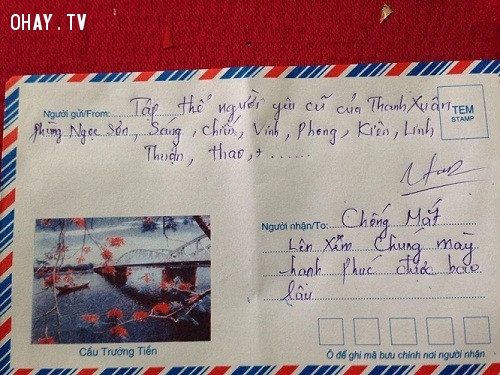 OHAY.TV
Người gửi/From: Tập thể người yêu cũ của Thanh Xuân
phùng Ngọc Sơn, Sáng, Chiến, Vinh, Phong, Kiên, Linh
Thuận, thao, + ......
TEM
STAMP
Người nhận/To: Chống Mắt
Lên Xem Chúng mày
hạnh phúc được bao
lâu
Cầu Trường Tiền
Ô để ghi mã bưu chính nơi người nhận